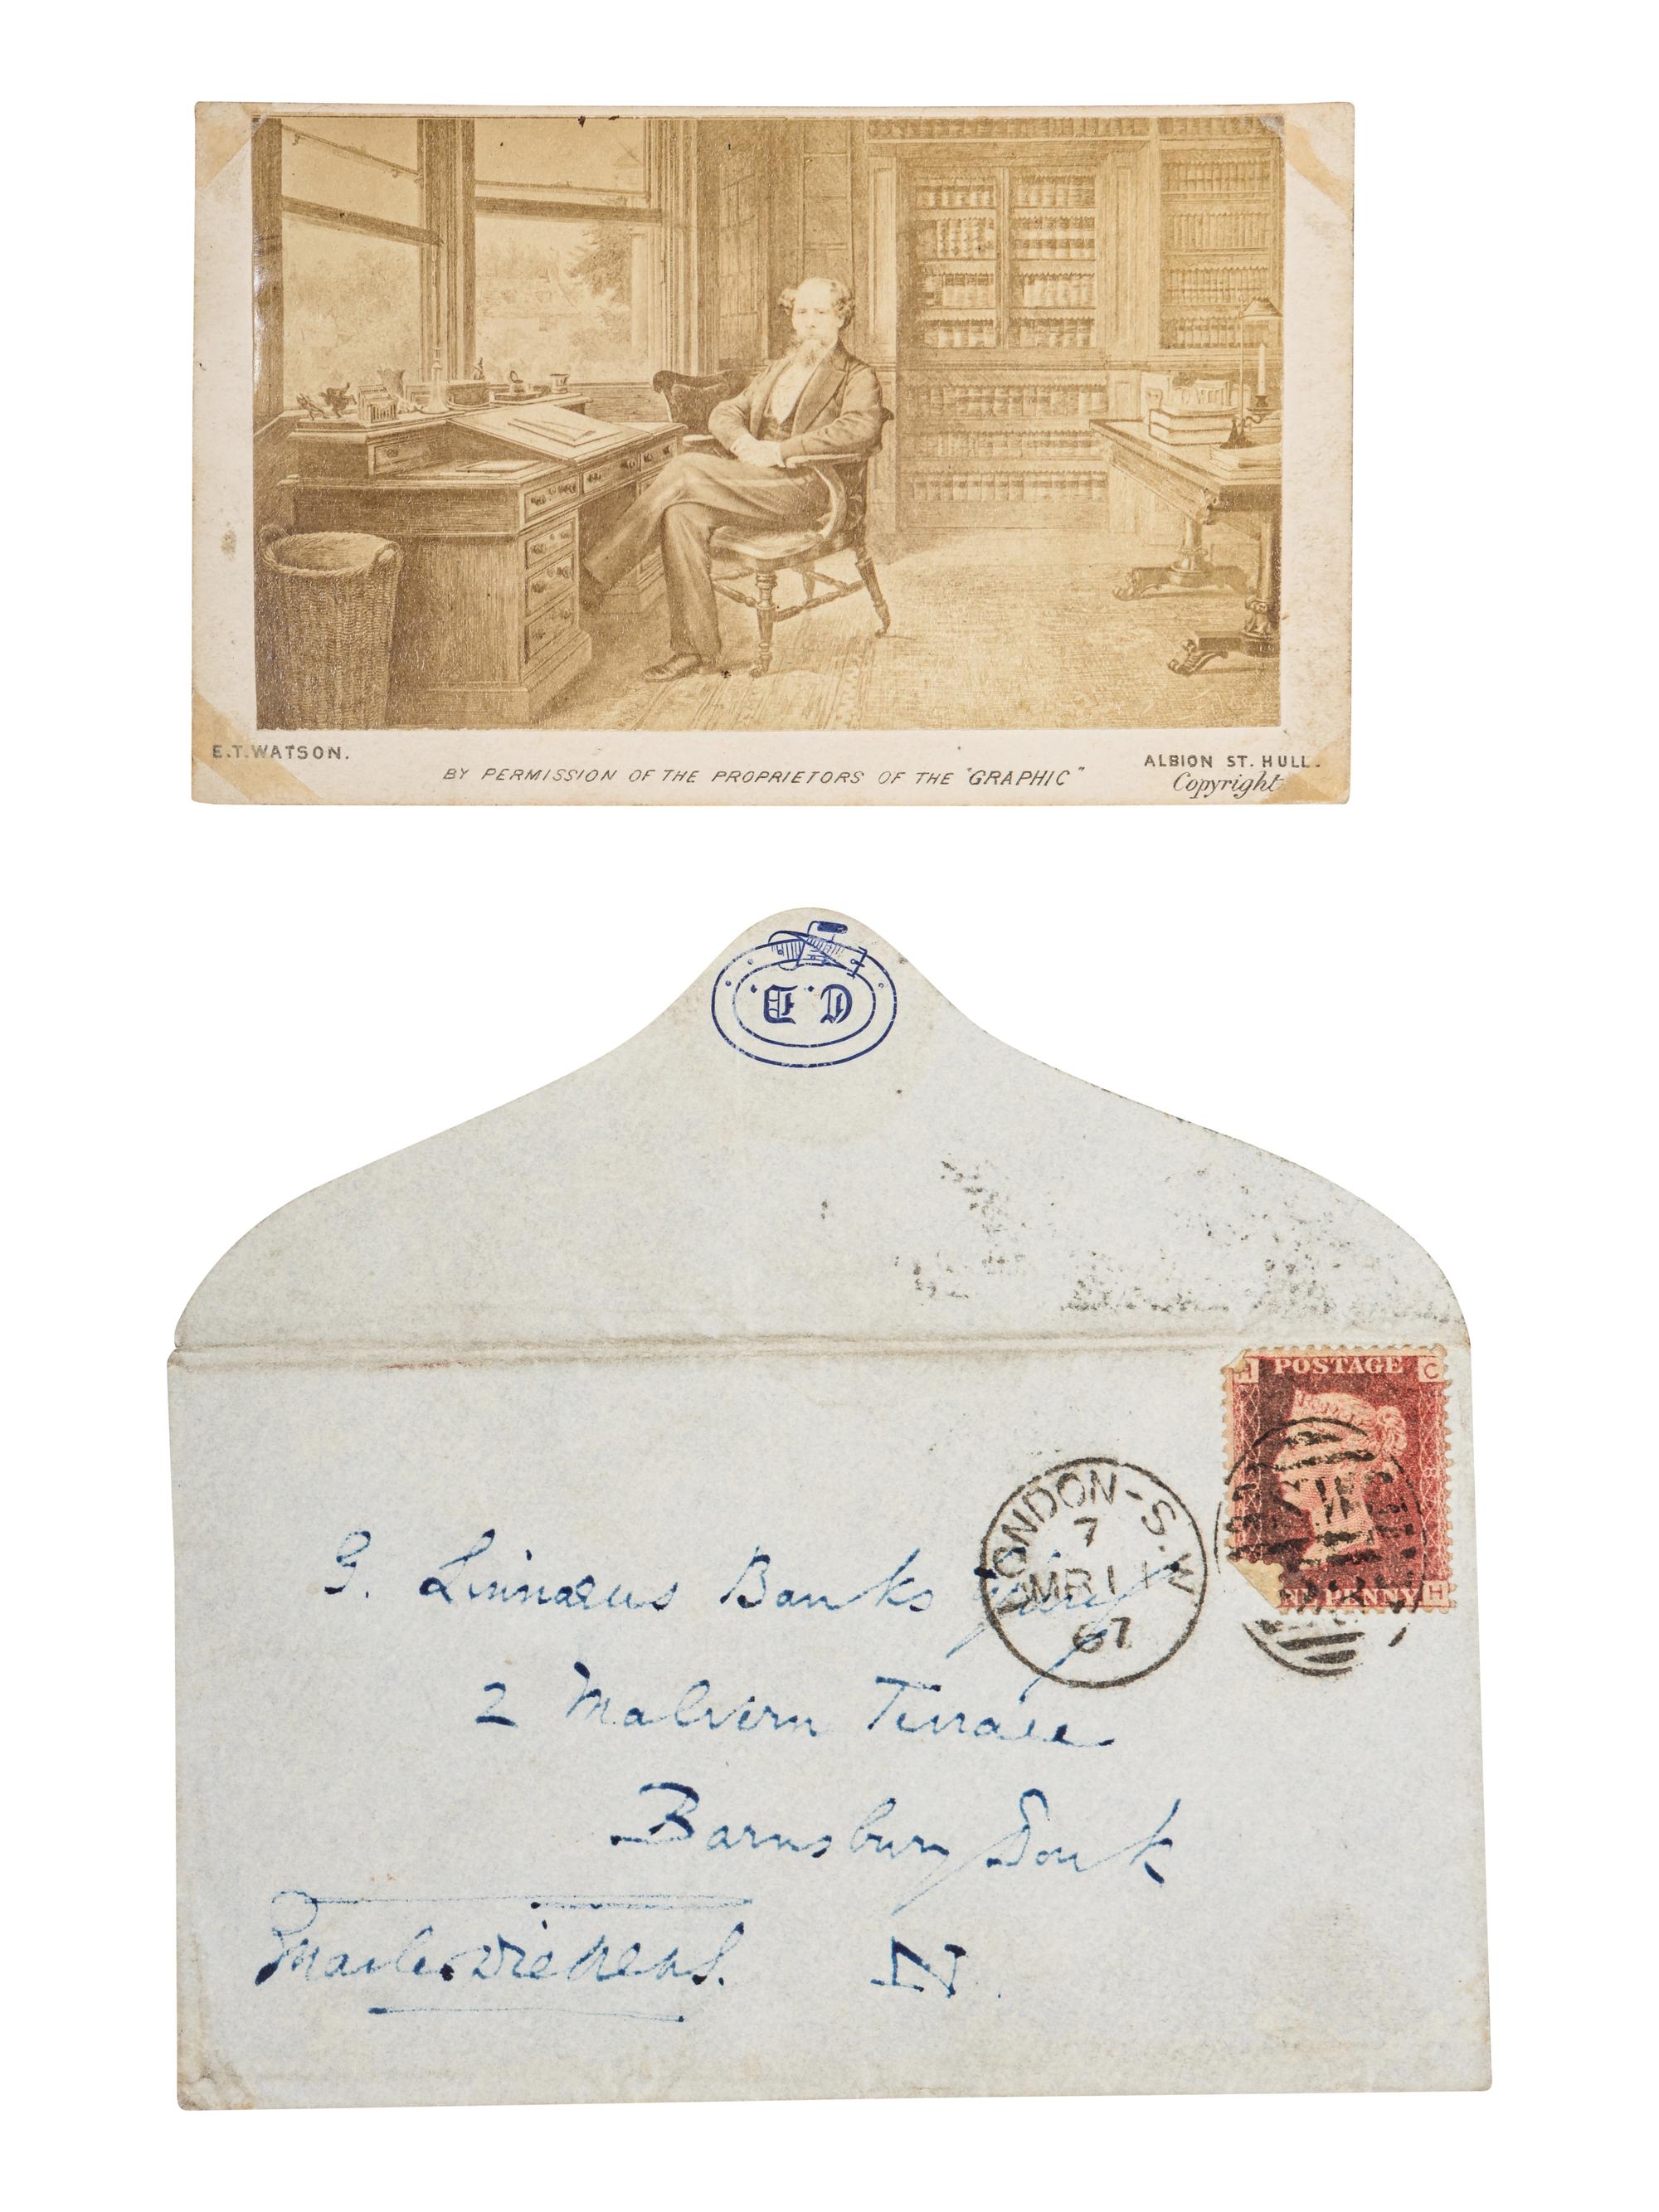 E.T. WATSON.
BY PERMISSION OF THE PROPRIETORS OF THE "GRAPHIC"
ALBION ST. HULL.
Copyright
C.D.
POSTAGE
C
LONDON-S.W
7
MR 11
67
PENNY
H
G. Linnaeus Banks Esquire
2 Malvern Terrace
Barnsbury Park
N.
Charles Dickens.